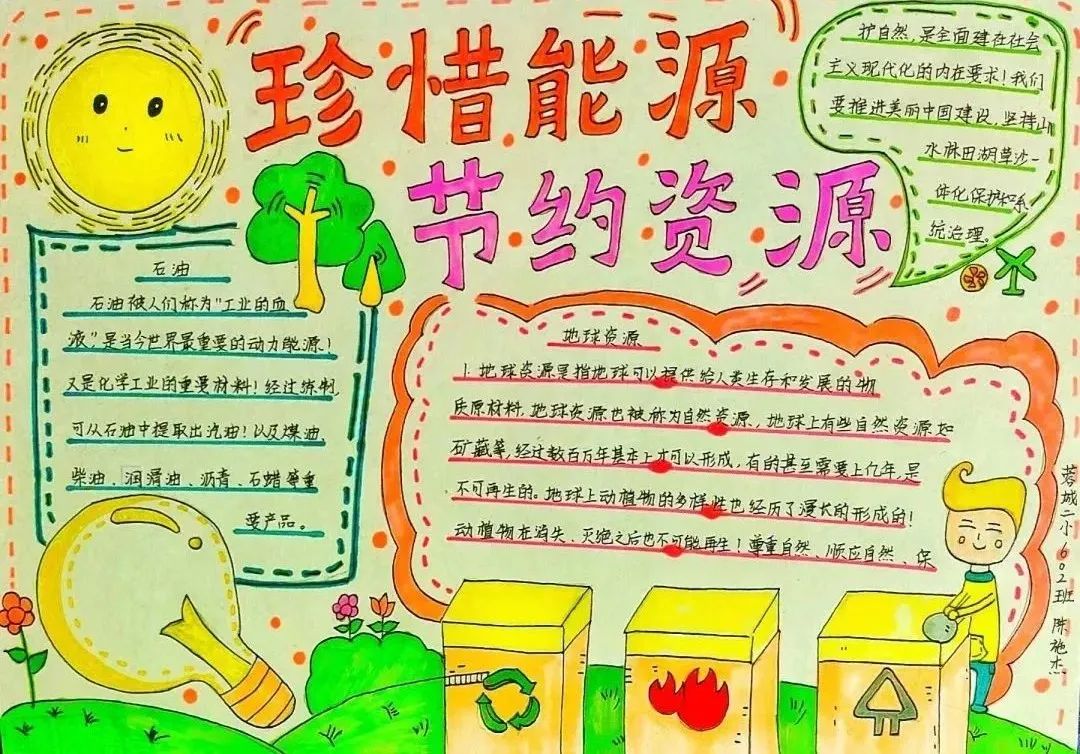 珍惜能源
节约资源
石油
石油被人们称为"工业的血
液"是当今世界最重要的动力能源!
又是化学工业的重要材料!经过炼制,
可从石油中提取出汽油!以及煤油、
柴油、润滑油、沥青、石蜡等重
要产品。
地球资源
1.地球资源是指地球可以提供给人类生存和发展的物
质原材料,地球资源也被称为自然资源,地球上有些自然资源如
矿藏等,经过数百万年基本上才可以形成,有的甚至需要上亿年,是
不可再生的。地球上动植物的多样性也经历了漫长的形成的!
动植物在消失、灭绝之后也不可能再生!尊重自然、顺应自然、保
护自然,是全面建在社会
主义现代化的内在要求!我们
要推进美丽中国建设,坚持山
水林田湖草沙一
体化保护和系
统治理。
蓉城二小602班 陈施杰